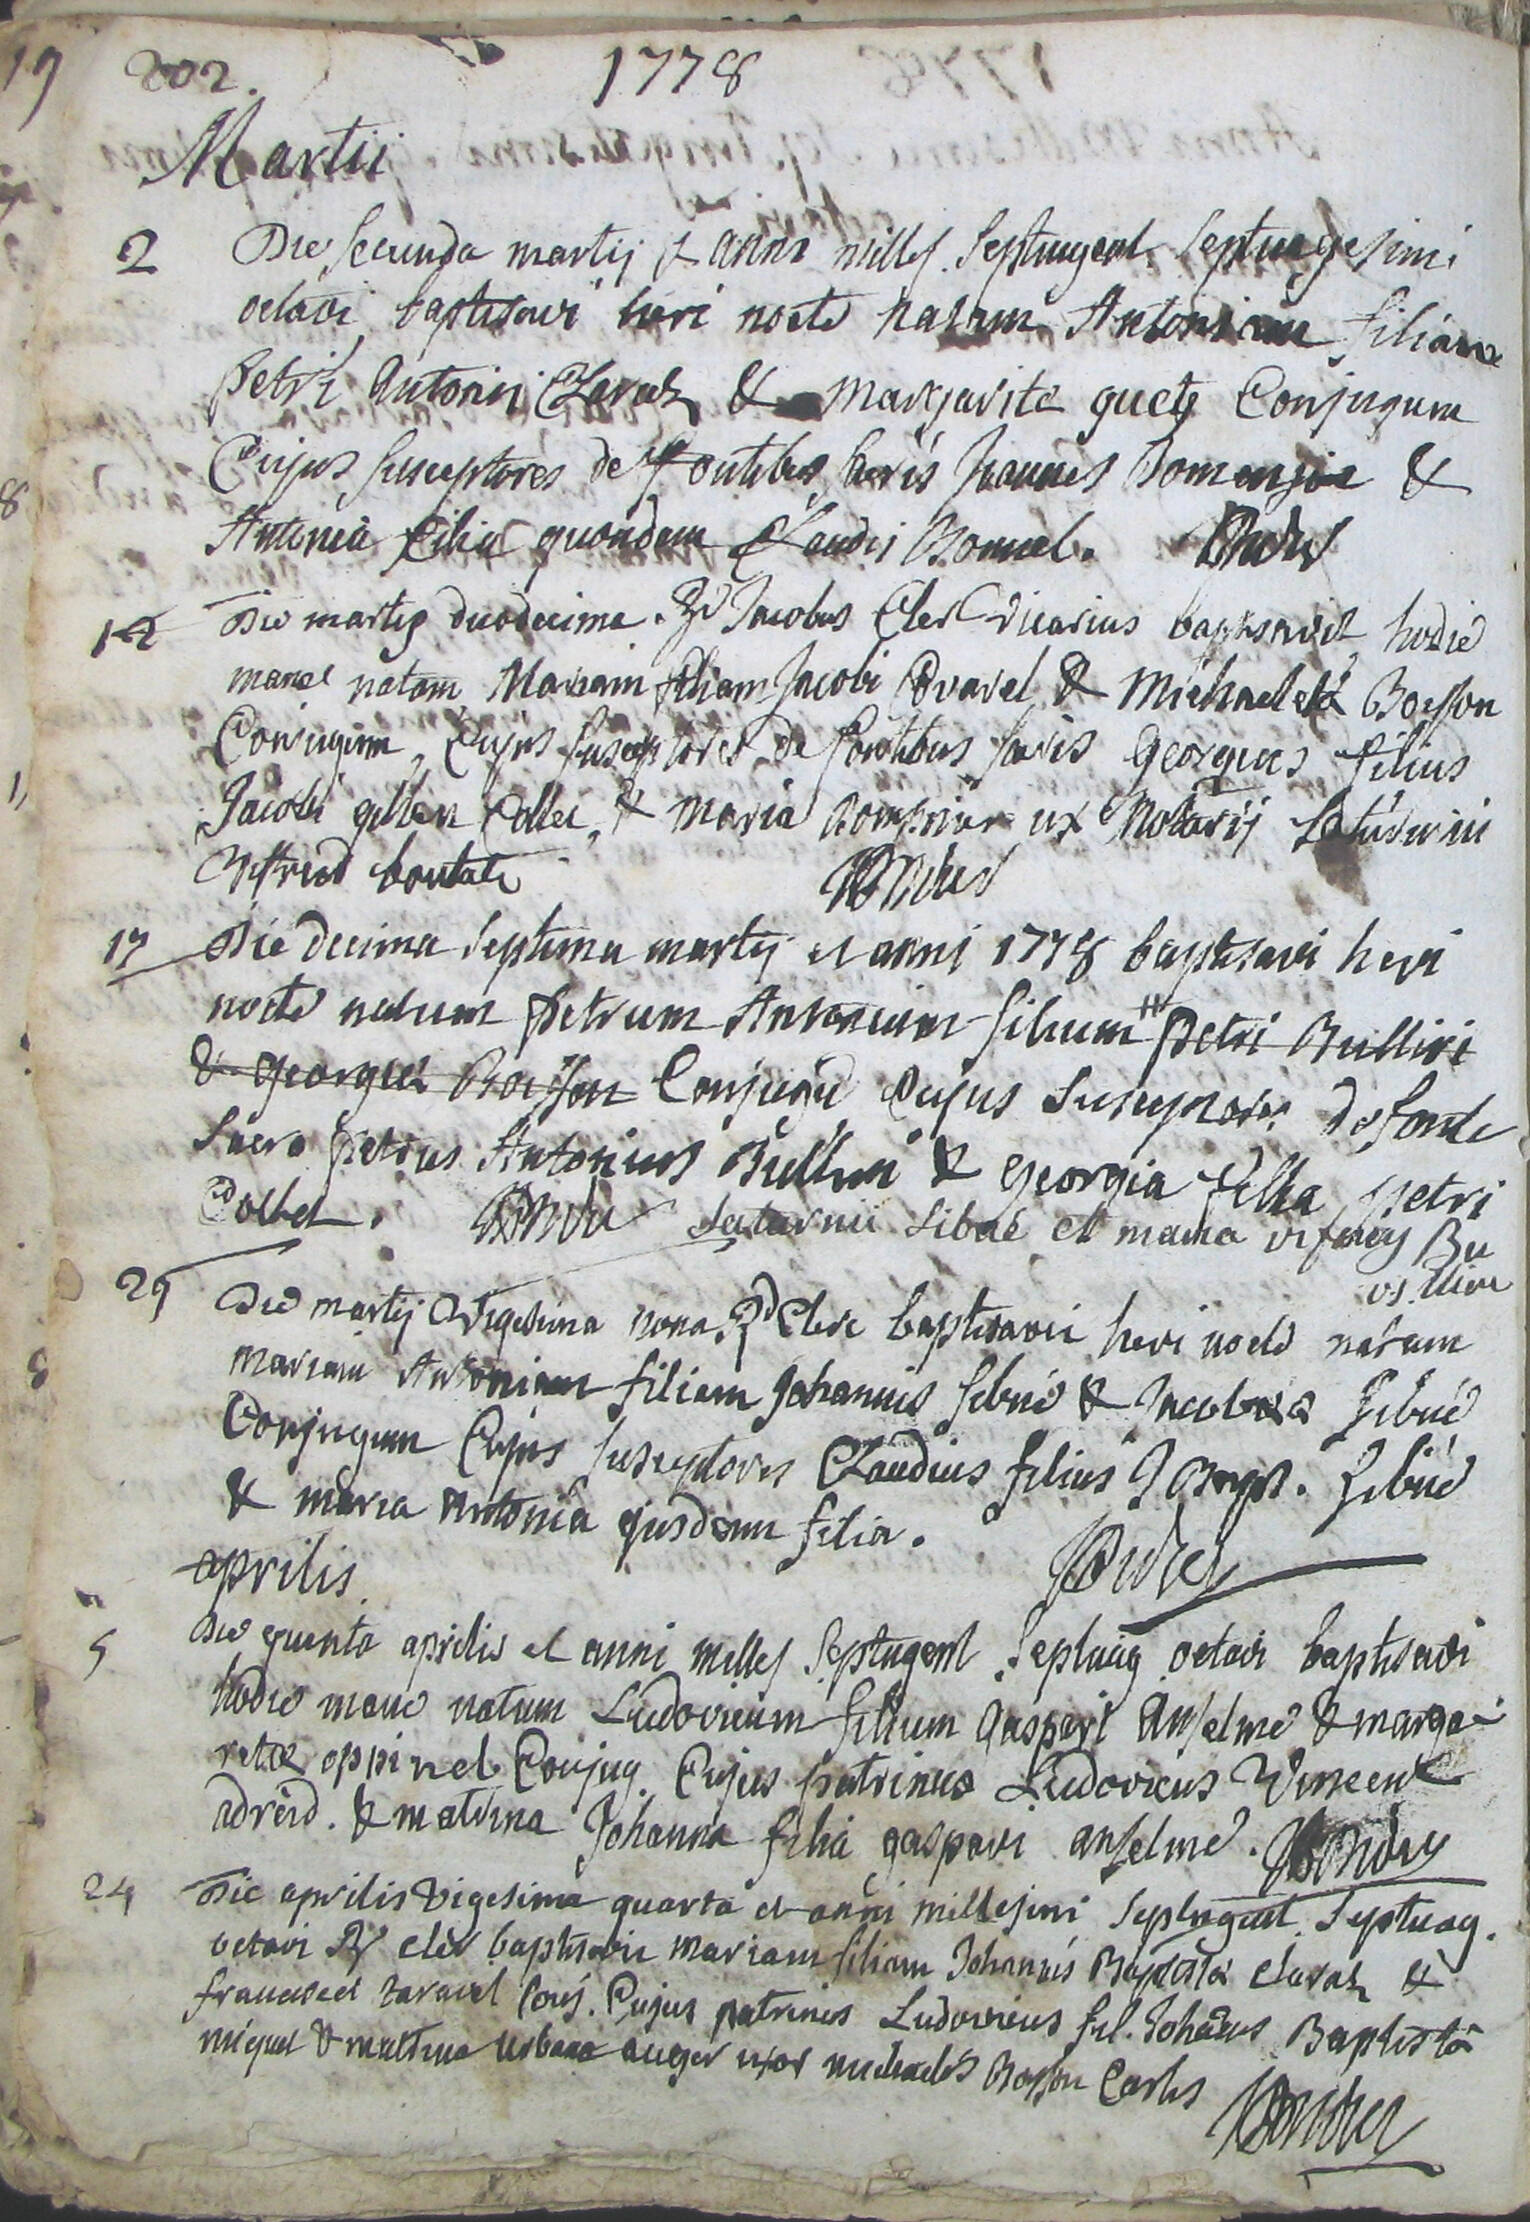 202. 1778
Martii
2 Die secunda martij & anni milles. septuagent septuagesimi
octavi baptisavi heri nocte natam Antoniam filiam
Petri Antonii Claraz & Margarite guets Conjugum
Cujus susceptores de fontibus sacris Joannes &
Antonia filia quondam Claudii Bonnel.
12 Die martij duodecima. Rd Jacobus Cler vicarius baptisavit hodie
mane natam Mariam filiam Jacobi Cvavel & Michaeletæ Boesson
Conjugum, Cujus susceptores de fontibus sacris georgius filius
Jacobi Collet, & maria ux Notarij Saturnini

17 Die decima septima martij et anni 1778 baptisavi heri
nocte natum Petrum Antonium filium Petri Bulliri
& georgiæ Boesson Conjugu Cujus susceptores de fonte
sacro petrus Antonius Bullivi & georgia filia petri
Collet. Saturnii Sibué et maria Bu
29 Die martij Vigesima nona Rd Clerc baptisavit heri nocte natam
mariam Antoniam filiam Johannis Sibué & Jacobææ Sibué
Conjugum Cujus susceptores Claudius filius Sibué
& maria Antonia ejusdem filia.
aprilis
5 Die quinta aprilis et anni milles septugent septuag octavi baptisavi
hodie mane natum Ludovicum filium gaspari Anselme & marga-
retæ oppinel Conjug. Cujus patrinus Ludovicus Vincent
adreid. & matrina Johanna filia gaspari anselme.
24 Die aprilis vigesima quarta et anni millesimi septugent. septuag.
octavi Rd cler baptisavit mariam filiam Johannis Baptistæ claraz &
francisca taravel Conj. Cujus patrinus Ludovicus fil. Johannis Baptistæ
miquet & matrina urbana auger uxor michaelis Bosson Carles